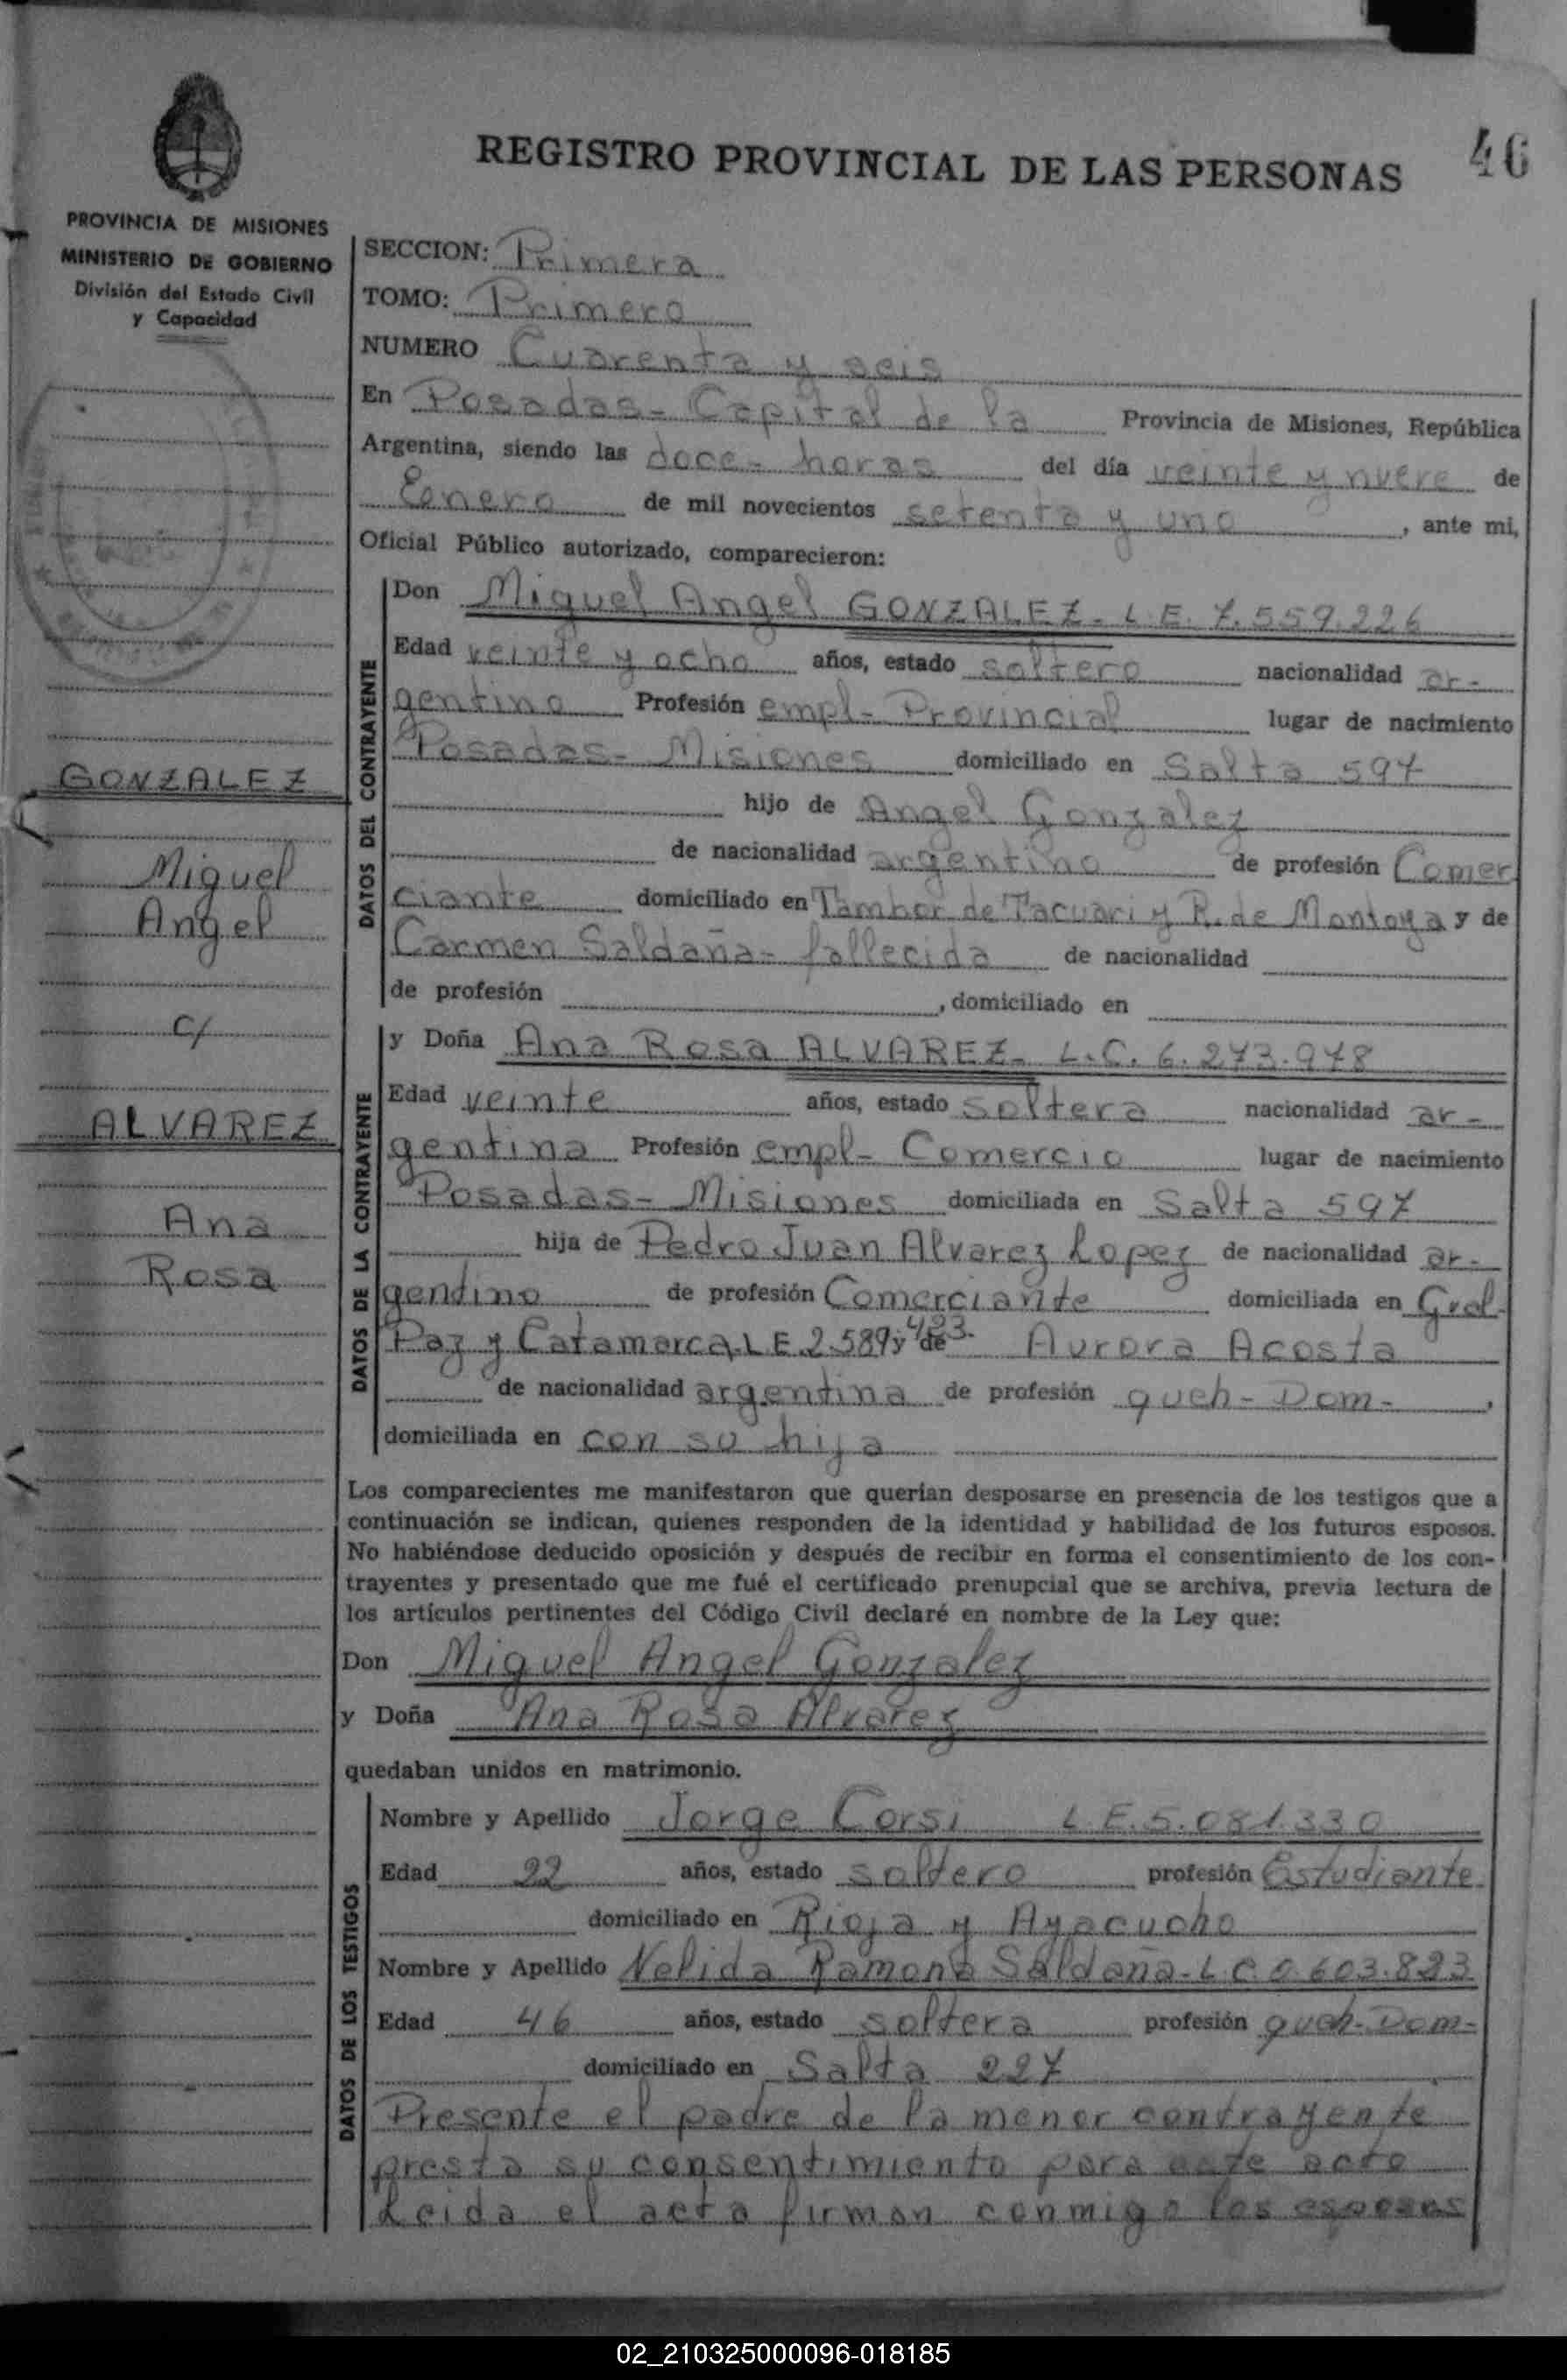 REGISTRO PROVINCIAL DE LAS PERSONAS
46
PROVINCIA DE MISIONES
MINISTERIO DE GOBIERNO
División del Estado Civil
y Capacidad
GONZALEZ
Miguel
Angel
c/
ALVAREZ
Ana
Rosa
SECCION: Primera
TOMO: Primero
NUMERO Cuarenta y seis
En Posadas- Capital de la Provincia de Misiones, República
Argentina, siendo las doce- horas del día veinte y nueve de
Enero de mil novecientos setenta y uno, ante mi,
Oficial Público autorizado, comparecieron:
DATOS DEL CONTRAYENTE
Don Miguel Angel GONZALEZ- L.E. 7.559.226
Edad veinte y ocho años, estado soltero nacionalidad ar-
gentino Profesión empl- Provincial lugar de nacimiento
Posadas- Misiones domiciliado en Salta 597
hijo de Angel Gonzalez
de nacionalidad argentino de profesión Comer
ciante domiciliado en Tambor de Tacuari y R. de Montoya y de
Carmen Saldaña- fallecida de nacionalidad
de profesión , domiciliado en
DATOS DE LA CONTRAYENTE
y Doña Ana Rosa ALVAREZ- L.C. 6.273.978
Edad veinte años, estado soltera nacionalidad ar-
gentina Profesión empl- Comercio lugar de nacimiento
Posadas- Misiones domiciliada en Salta 597
hija de Pedro Juan Alvarez Lopez de nacionalidad ar-
gentino de profesión Comerciante domiciliada en Gral-
Paz y Catamarca. L.E. 2.589.493. y de Aurora Acosta
de nacionalidad argentina de profesión queh- Dom- ,
domiciliada en con su hija
Los comparecientes me manifestaron que querían desposarse en presencia de los testigos que a
continuación se indican, quienes responden de la identidad y habilidad de los futuros esposos.
No habiéndose deducido oposición y después de recibir en forma el consentimiento de los con-
trayentes y presentado que me fué el certificado prenupcial que se archiva, previa lectura de
los artículos pertinentes del Código Civil declaré en nombre de la Ley que:
Don Miguel Angel Gonzalez
y Doña Ana Rosa Alvarez
quedaban unidos en matrimonio.
DATOS DE LOS TESTIGOS
Nombre y Apellido Jorge Corsi L.E. 5.081.330
Edad 22 años, estado soltero profesión Estudiante
domiciliado en Rioja y Ayacucho
Nombre y Apellido Nelida Ramona Saldaña- L.C. 0.603.823
Edad 46 años, estado soltera profesión queh- Dom-
domiciliado en Salta 227
Presente el padre de la menor contrayente
presta su consentimiento para este acto
Leida el acta firman conmigo los esposos
02_210325000096-018185